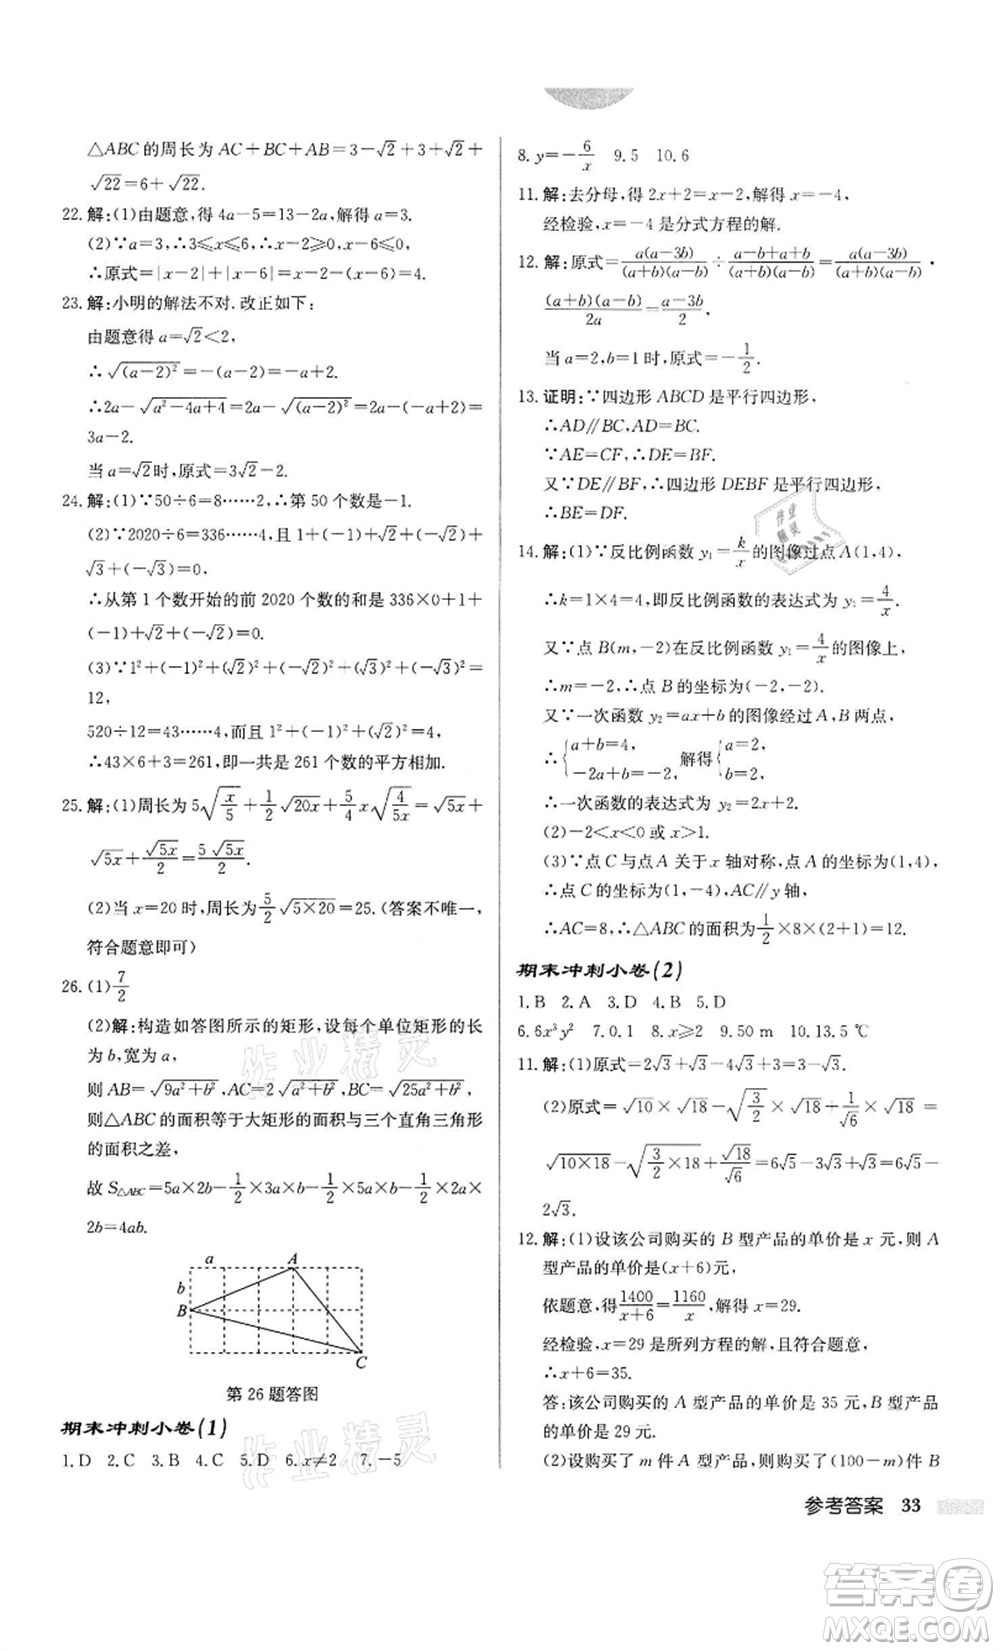 △ABC的周长为AC+BC+AB=3-√2+3+√2+
√22=6+√22.
22.解:(1)由题意,得4a-5=13-2a,解得a=3.
(2)∵a=3,∴3≤x≤6,∴x-2>0,x-6≤0,
∴原式=|x-2|+|x-6|=x-2-x+6=4.
23.解:小明的解法不对.改正如下:
由题意得a=√2<2,
∴√(a-2)²=-(a-2)=-a+2.
∴2a-√a²-4a+4=2a-√(a-2)²=2a-(-a+2)=
3a-2.
当a=√2时,原式=3√2-2.
24.解:(1)∵50÷6=8……2,∴第50个数是-1.
(2)∵2020÷6=336……4,1+(-1)+√2+(-√2)+
√3+(-√3)=0,
∴从第1个数开始的前2020个数的和是336×0+1+
(-1)+√2+(-√2)=0.
(3)∵1²+(-1)²+(√2)²+(-√2)²+(√3)²+(-√3)²=
12,
520÷12=43……4,而且1²+(-1)²+(√2)²=4,
∴43×6+3=261,即一共是261个数的平方相加.
25.解:(1)周长为5√(x/5)+1/2√20x+5/4x√(4/5x)=√5x+
√5x+√5x/2=5√5x/2.
(2)当x=20时,周长为5/2√5×20=25.(答案不唯一,
符合题意即可)
26.(1)7/2
(2)解:构造如答图所示的矩形,设每个单位矩形的长
为a,宽为b,
则AB=√9a²+b²,AC=2√a²+b²,BC=√25a²+b²,
则△ABC的面积等于大矩形的面积与三个直角三角形
的面积之差,
故S△ABC=5a×2b-1/2×3a×b-1/2×5a×b-1/2×2a×
2b=4ab.
a
A
b
B
C
第26题答图
期末冲刺小卷(1)
1.D 2.C 3.B 4.C 5.D 6.x≠2 7.-5
8.y=-6/x 9.5 10.6
11.解:去分母,得2x+2=x-2,解得x=-4,
经检验,x=-4是分式方程的解.
12.解:原式=a(a-3b)/(a+b)(a-b)÷a-b+a+b/a+b=a(a-3b)/(a+b)(a-b)·
(a+b)(a-b)/2a=a-3b/2,
当a=2,b=1时,原式=-1/2.
13.证明:∵四边形ABCD是平行四边形,
∴AD∥BC,AD=BC.
∵AE=CF,∴DE=BF.
又∵DE∥BF,∴四边形DEBF是平行四边形,
∴BE=DF.
14.解:(1)∵反比例函数y₁=k/x的图像过点A(1,4),
∴k=1×4=4,即反比例函数的表达式为y₁=4/x.
又∵点B(m,-2)在反比例函数y₁=4/x的图像上,
∴m=-2,∴点B的坐标为(-2,-2).
又∵一次函数y₂=ax+b的图像经过A,B两点,
∴{a+b=4, -2a+b=-2, 解得{a=2, b=2,
∴一次函数的表达式为y₂=2x+2.
(2)-2<x<0或x>1.
(3)∵点C与点A关于x轴对称,点A的坐标为(1,4),
∴点C的坐标为(1,-4),AC∥y轴,
∴AC=8,∴△ABC的面积为1/2×8×(2+1)=12.
期末冲刺小卷(2)
1.B 2.A 3.D 4.B 5.D
6.6x³y² 7.0.1 8.x≥2 9.50 m 10.13.5 ℃
11.解:(1)原式=2√3+√3-4√3+√3=0.
(2)原式=√10×√18-√(3/2)×√18+1/√6×√18=
√10×18-√(3/2×18)+√18/√6=6√5-3√3+√3=6√5-
2√3.
12.解:(1)设该公司购买的B型产品的单价是x元,则A
型产品的单价是(x+6)元,
依题意,得1400/x+6=1160/x,解得x=29.
经检验,x=29是所列方程的解,且符合题意,
∴x+6=35.
答:该公司购买的A型产品的单价是35元,B型产品
的单价是29元.
(2)设购买了m件A型产品,则购买了(100-m)件B
参考答案 33
作业精灵
作业精灵
作业精灵
答案卷
MXQE.COM